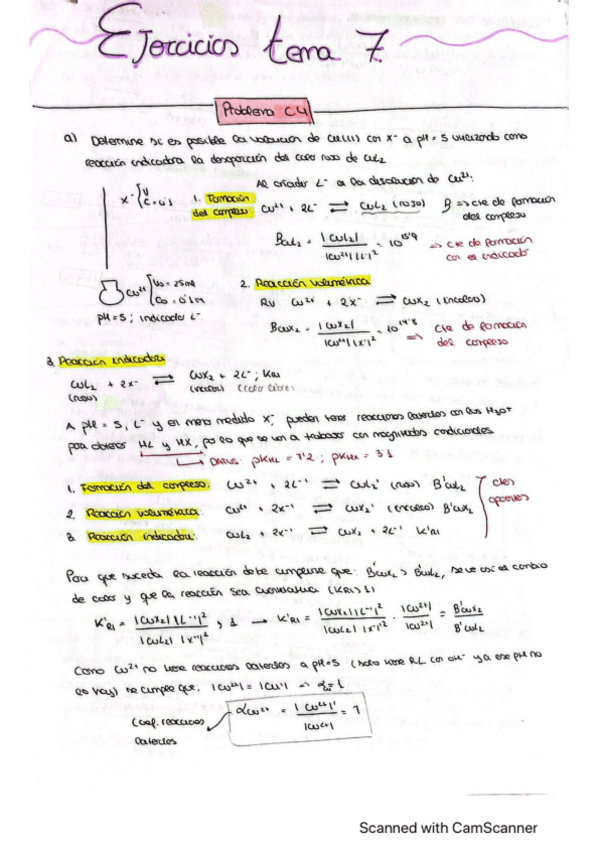 Ejercicios tema 7.
Problema C4
a) Determine si es posible la valoración de Cu(II) con X⁻ a pH = 5 utilizando como
reacción indicadora la desaparición del color rosa de CuL₂
Al añadir L⁻ a la disolución de Cu²⁺:
X⁻ { V C = 0'1
1. Formación del complejo Cu²⁺ + 2L⁻ ⇌ CuL₂ (rosa) β => cte de formación del complejo
βCuL₂ = |CuL₂| / |Cu²⁺||L⁻|² = 10^15'9 => cte de formación con el indicador
Cu²⁺ { V₀ = 25mL C₀ = 0'1M
pH = 5 ; indicador L⁻.
2. Reacción volumétrica
RV Cu²⁺ + 2X⁻ ⇌ CuX₂ (incoloro)
βCuX₂ = |CuX₂| / |Cu²⁺||X⁻|² = 10^14'8 => cte de formación del complejo
3. Reacción indicadora
CuL₂ + 2X⁻ ⇌ CuX₂ + 2L⁻ ; KRI
(rosa) (incoloro) (color libre)
A pH = 5, L⁻ y el mismo medido X⁻, pueden tener reacciones laterales con los H₃O⁺
para obtener HL y HX, por lo que se van a trabajar con magnitudes condicionales
DATOS: pKHL = 7'2 ; pKHX = 3'1
1. Formación del complejo: Cu²⁺ + 2L⁻' ⇌ CuL₂' (rosa) β'CuL₂
2. Reacción volumétrica: Cu²⁺ + 2X⁻' ⇌ CuX₂' (incoloro) β'CuX₂
3. Reacción indicador: CuL₂ + 2X⁻' ⇌ CuX₂ + 2L⁻' K'RI
ctes aparentes
Para que suceda la reacción debe cumplirse que: β'CuX₂ > β'CuL₂, se ve así el cambio
de color y que la reacción sea cuantitativa (KRI > 1)
K'RI = |CuX₂||L⁻'|² / |CuL₂||X⁻'|² > 1 → K'RI = |CuX₂||L⁻'|² / |CuL₂||X⁻'|² · |Cu²⁺| / |Cu²⁺| = β'CuX₂ / β'CuL₂
Como Cu²⁺ no tiene reacciones laterales a pH = 5 (solo tiene R.L. con OH⁻ y a ese pH no
es hay) se cumple que: |Cu²⁺| = |Cu'| => α = 1
Coef. reacciones laterales
αCu²⁺ = |Cu²⁺|' / |Cu²⁺| = 1
Scanned with CamScanner